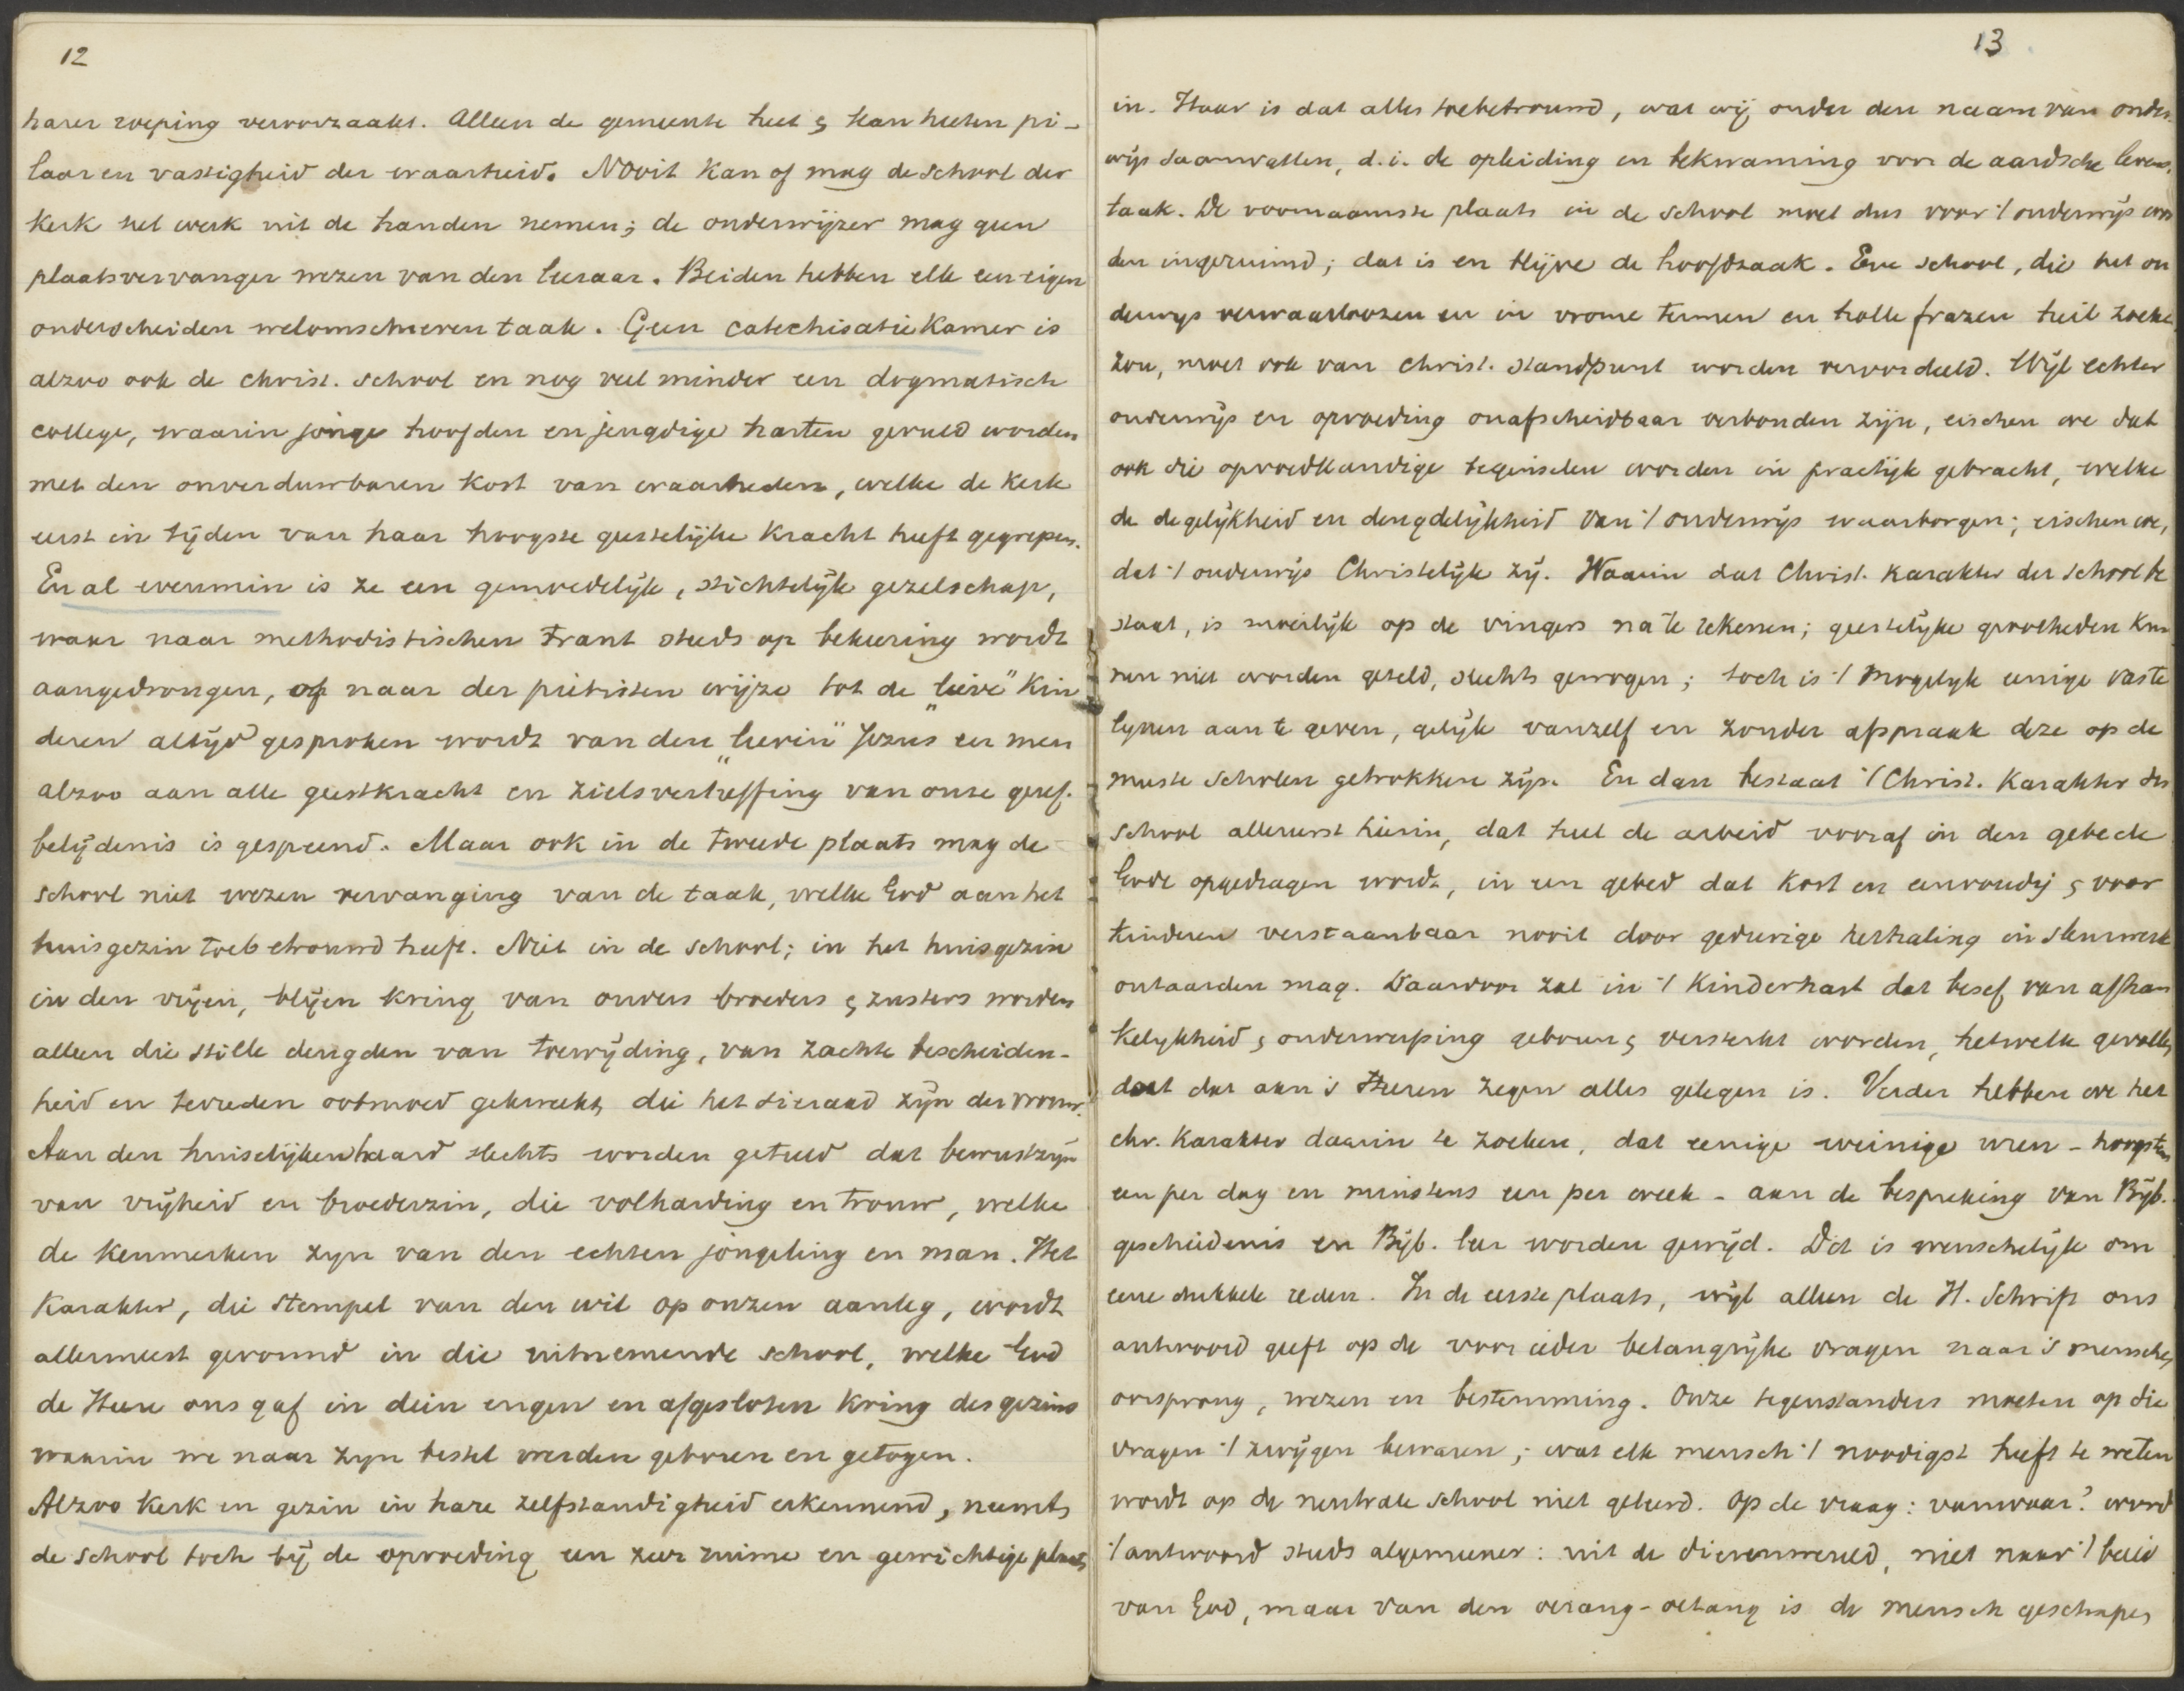 12
harer roeping veroorzaakt. Alleen de gemeente heet & kan heeten pi-
laar en vastigheid der waarheid. Nooit kan of mag de school der
kerk het werk uit de handen nemen; de onderwijzer mag geen
plaatsvervanger wezen van den leeraar. Beiden hebben elk een eigen
onderscheiden welomschreven taak. Geen catechisatiekamer is
alzoo ook de christ. school en nog veel minder een dogmatisch
college, waarin jonge hoofden en jeugdige harten gevuld worden
met den onverduwbaren kost van waarheden, welke de kerk
eerst in tijden van haar hoogste geestelijke kracht heeft gegrepen.
En al evenmin is ze een gemoedelijk, stichtelijk gezelschap,
waar naar methodistischen trant steeds op bekeering wordt
aangedrongen, of naar der piëtisten wijze tot de "lieve" kin
deren altijd gesproken wordt van den "lieven" Jezus en men
alzoo aan alle geestkracht en zielsverheffing van onze geref.
belijdenis is gespeend. Maar ook in de tweede plaats mag de
school niet wezen vervanging van de taak, welke God aan het
huisgezin toebetrouwd heeft. Niet in de school; in het huisgezin
in den vrijen, blijen kring van ouders broeders & zusters worden
alleen die stille deugden van toewijding, van zachte bescheiden-
heid en tevreden ootmoed gekweekt, die het sieraad zijn der vrouw.
Aan den huiselijken haard slechts worden geteeld dat bewustzijn
van vrijheid en broederzin, die volharding en trouw, welke
de kenmerken zijn van den echten jongeling en man. Het
karakter, die stempel van den wil op onzen aanleg, wordt
allermeest gevormd in die uitnemende school, welke God
de Heere ons gaf in dien engen en afgesloten kring des gezins
waarin we naar zijn bestel werden geboren en getogen.
Alzoo kerk en gezin in hare zelfstandigheid erkennend, neemt
de school toch bij de opvoeding een zeer ruime en gewichtige plaats
13
in. Haar is dat alles toebetrouwd, wat wij onder den naam van onder
wijs saamvatten, d.i. de opleiding en bekwaming voor de aardsche levens
taak. De voornaamste plaats in de school moet dus voor 't onderwijs wor
den ingeruimd; dat is en blijve de hoofdzaak. Eene school, die het on
derwijs verwaarloozen en in vrome termen en holle frazen heil zoeken
zou, moet ook van christ. standpunt worden veroordeeld. Wijl echter
onderwijs en opvoeding onafscheidbaar verbonden zijn, eischen we dat
ook die opvoedkundige beginselen worden in practijk gebracht, welke
de degelijkheid en deugdelijkheid van 't onderwijs waarborgen; eischen we,
dat 't onderwijs Christelijk zij. Waarin dat Christ. karakter der school be
staat, is moeilijk op de vingers na te rekenen; geestelijke grootheden kun
nen niet worden geteld, slechts gewogen; toch is 't mogelijk eenige vaste
lijnen aan te geven, gelijk vanzelf en zonder afspraak deze op de
meeste scholen getrokken zijn. En dan bestaat 't Christ. karakter der
school allereerst hierin, dat heel de arbeid vooraf in den gebede
Gode opgedragen wordt, in een gebed dat kort en eenvoudig & voor
kinderen verstaanbaar nooit door gedurige herhaling in sleurwerk
ontaarden mag. Daardoor zal in 't kinderhart dat besef van afhan
kelijkheid & onderwerping geboren & versterkt worden, hetwelk gevoelen
doet dat aan 's Heeren zegen alles gelegen is. Verder hebben we het
chr. karakter daarin te zoeken, dat eenige weinige uren - hoogstens
een per dag en minstens een per week - aan de bespreking van Bijb.
geschiedenis en Bijb. leer worden gewijd. Dit is wenschelijk om
eene dubbele reden. In de eerste plaats, wijl alleen de H. Schrift ons
antwoord geeft op de voor ieder belangrijke vragen naar 's menschen
oorsprong, wezen en bestemming. Onze tegenstanders moeten op die
vragen 't zwijgen bewaren; wat elk mensch 't noodigst heeft te weten
wordt op de neutrale school niet geleerd. Op de vraag: vanwaar? word
't antwoord steeds algemeener: uit de dierenwereld, niet naar 't beeld
van God, maar van den oerang-oetang is de mensch geschapen